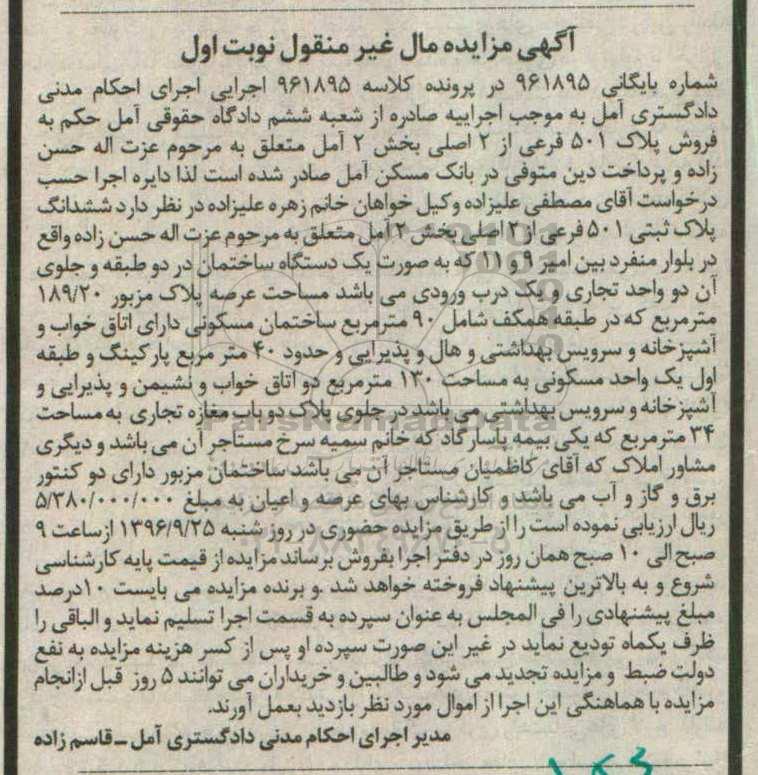 آگهی مزایده مال غیر منقول نوبت اول
شماره بایگانی ۹۶۱۸۹۵ در پرونده کلاسه ۹۶۱۸۹۵ اجرایی اجرای احکام مدنی
دادگستری آمل به موجب اجراییه صادره از شعبه ششم دادگاه حقوقی آمل حکم به
فروش پلاک ۵۰۱ فرعی از ۲ اصلی بخش ۲ آمل متعلق به مرحوم عزت اله حسن
زاده و پرداخت دین متوفی در بانک مسکن آمل صادر شده است لذا دایره اجرا حسب
درخواست آقای مصطفی علیزاده وکیل خواهان خانم زهره علیزاده در نظر دارد ششدانگ
پلاک ثبتی ۵۰۱ فرعی از ۲ اصلی بخش ۲ آمل متعلق به مرحوم عزت اله حسن زاده واقع
در بلوار منفرد بین امیر ۹ و ۱۱ که به صورت یک دستگاه ساختمان در دو طبقه و جلوی
آن دو واحد تجاری و یک درب ورودی می باشد مساحت عرصه پلاک مزبور ۱۸۹/۲۰
مترمربع که در طبقه همکف شامل ۹۰ مترمربع ساختمان مسکونی دارای اتاق خواب و
آشپزخانه و سرویس بهداشتی و هال و پذیرایی و حدود ۴۰ متر مربع پارکینگ و طبقه
اول یک واحد مسکونی به مساحت ۱۳۰ مترمربع دو اتاق خواب و نشیمن و پذیرایی و
آشپزخانه و سرویس بهداشتی می باشد در جلوی پلاک دو باب مغازه تجاری به مساحت
۳۴ مترمربع که یکی بیمه پاسارگاد که خانم سمیه سرخ مستاجر آن می باشد و دیگری
مشاور املاک که آقای کاظمیان مستاجر آن می باشد ساختمان مزبور دارای دو کنتور
برق و گاز و آب می باشد و کارشناس بهای عرصه و اعیان به مبلغ ۵/۳۸۰/۰۰۰/۰۰۰
ریال ارزیابی نموده است را از طریق مزایده حضوری در روز شنبه ۱۳۹۶/۹/۲۵ ازساعت ۹
صبح الی ۱۰ صبح همان روز در دفتر اجرا بفروش برساند مزایده از قیمت پایه کارشناسی
شروع و به بالاترین پیشنهاد فروخته خواهد شد .و برنده مزایده می بایست ۱۰درصد
مبلغ پیشنهادی را فی المجلس به عنوان سپرده به قسمت اجرا تسلیم نماید و الباقی را
ظرف یکماه تودیع نماید در غیر این صورت سپرده او پس از کسر هزینه مزایده به نفع
دولت ضبط و مزایده تجدید می شود و طالبین و خریداران می توانند ۵ روز قبل ازانجام
مزایده با هماهنگی این اجرا از اموال مورد نظر بازدید بعمل آورند.
مدیر اجرای احکام مدنی دادگستری آمل ـ قاسم زاده
ParsNamadData